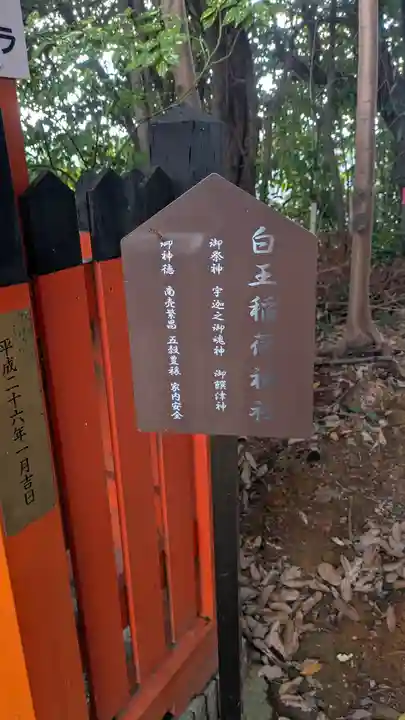 白王稲荷神社
御祭神 宇迦之御魂神 御饌津神
御神徳 商売繁昌 五穀豊穣 家内安全
平成二十六年一月吉日
ラ